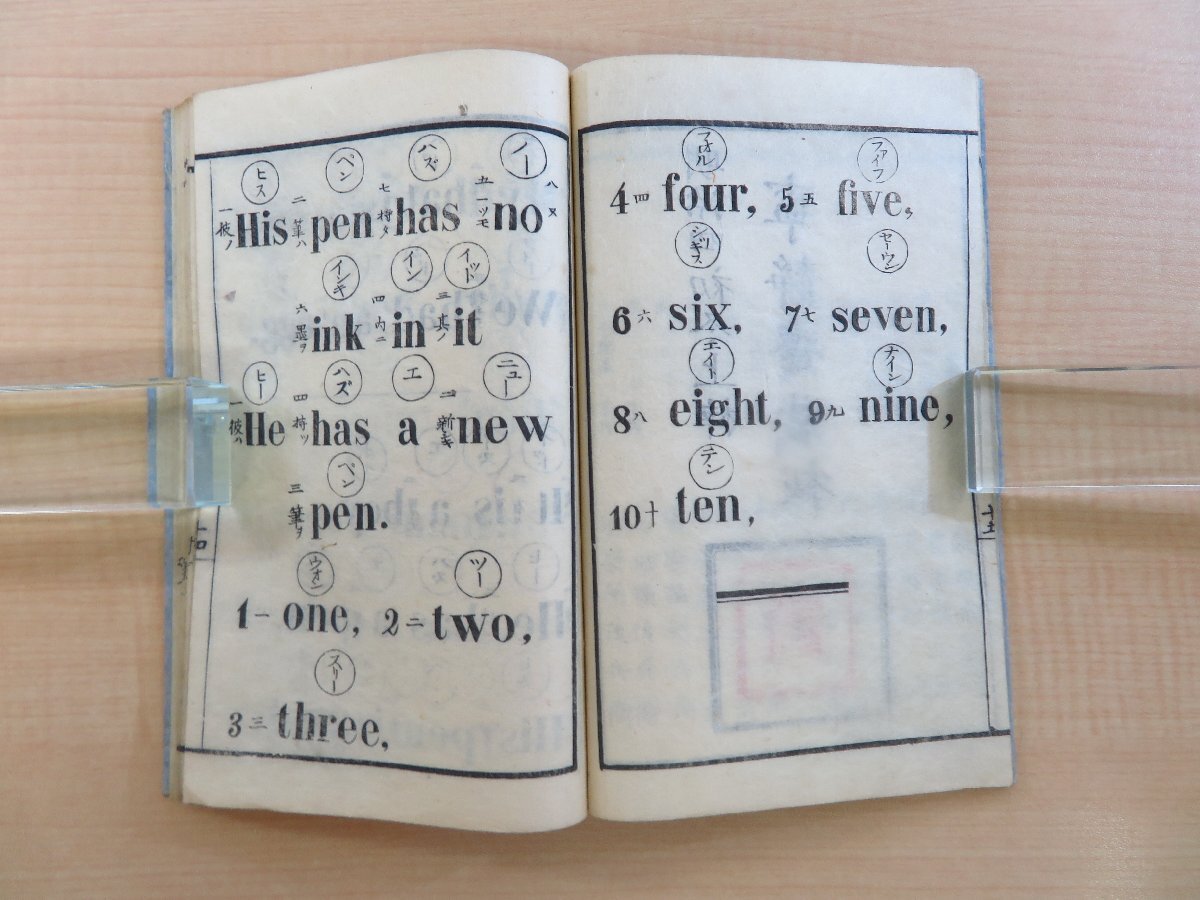 ヒス ペン ハズ ノー
一彼ノ His 二筆ハ pen 七持タ has 五一ツモ no 八ヌ
インキ イン イット
六墨ヲ ink 四内ニ in 三其ノ it
ヒー ハズ エ ニュー
一彼ハ He 四持ツ has a 二新シキ new
ペン
三筆ヲ pen.
ウオン ツー
1 一 one, 2 二 two,
スリー
3 三 three,
十四
フオル ファイフ
4 四 four, 5 五 five,
シッギス セーウン
6 六 six, 7 七 seven,
エイト ナイン
8 八 eight, 9 九 nine,
テン
10 十 ten,
十五